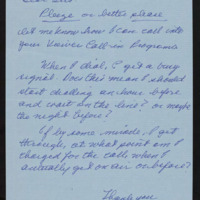 Please or better please
let me know how I can call into
your Univer Call-in Programs
When I dial, I get a busy
signal. Does this mean I should
start dialing an hour before
and stay on the line? or maybe
the night before?
If by some miracle I get
through, at what point am I
charged for the call? when I
actually get on air or before?
Thank you